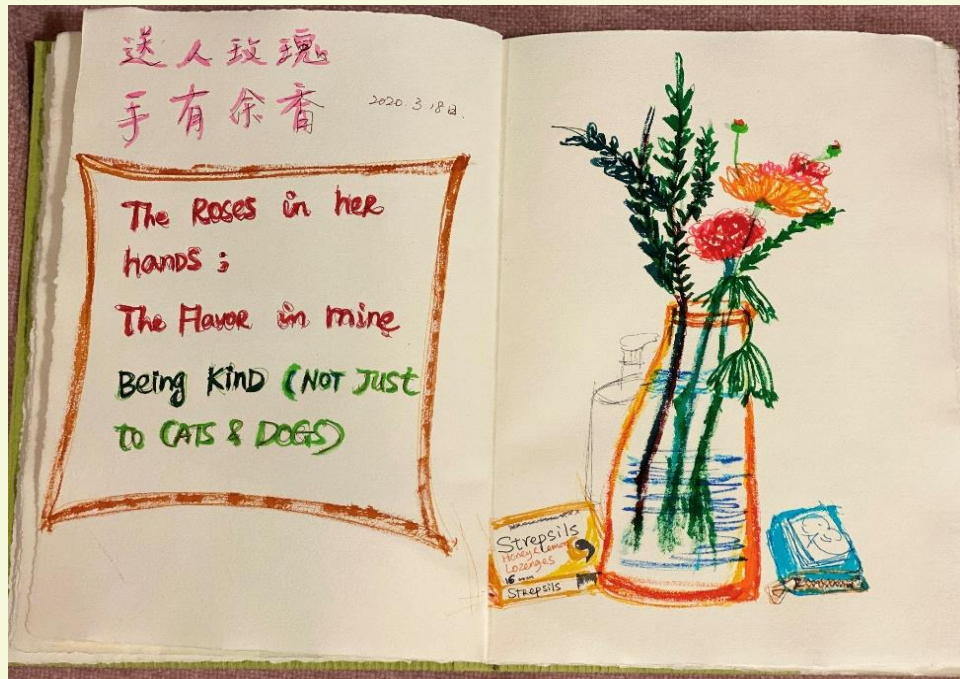 送人玫瑰
手有余香
2020.3.18日.
The Roses in her
hands ;
The Flavor in mine
Being KinD (NOT Just
to CATS & DOGS)
Strepsils
Honey & Lemon
Lozenges
16
Strepsils